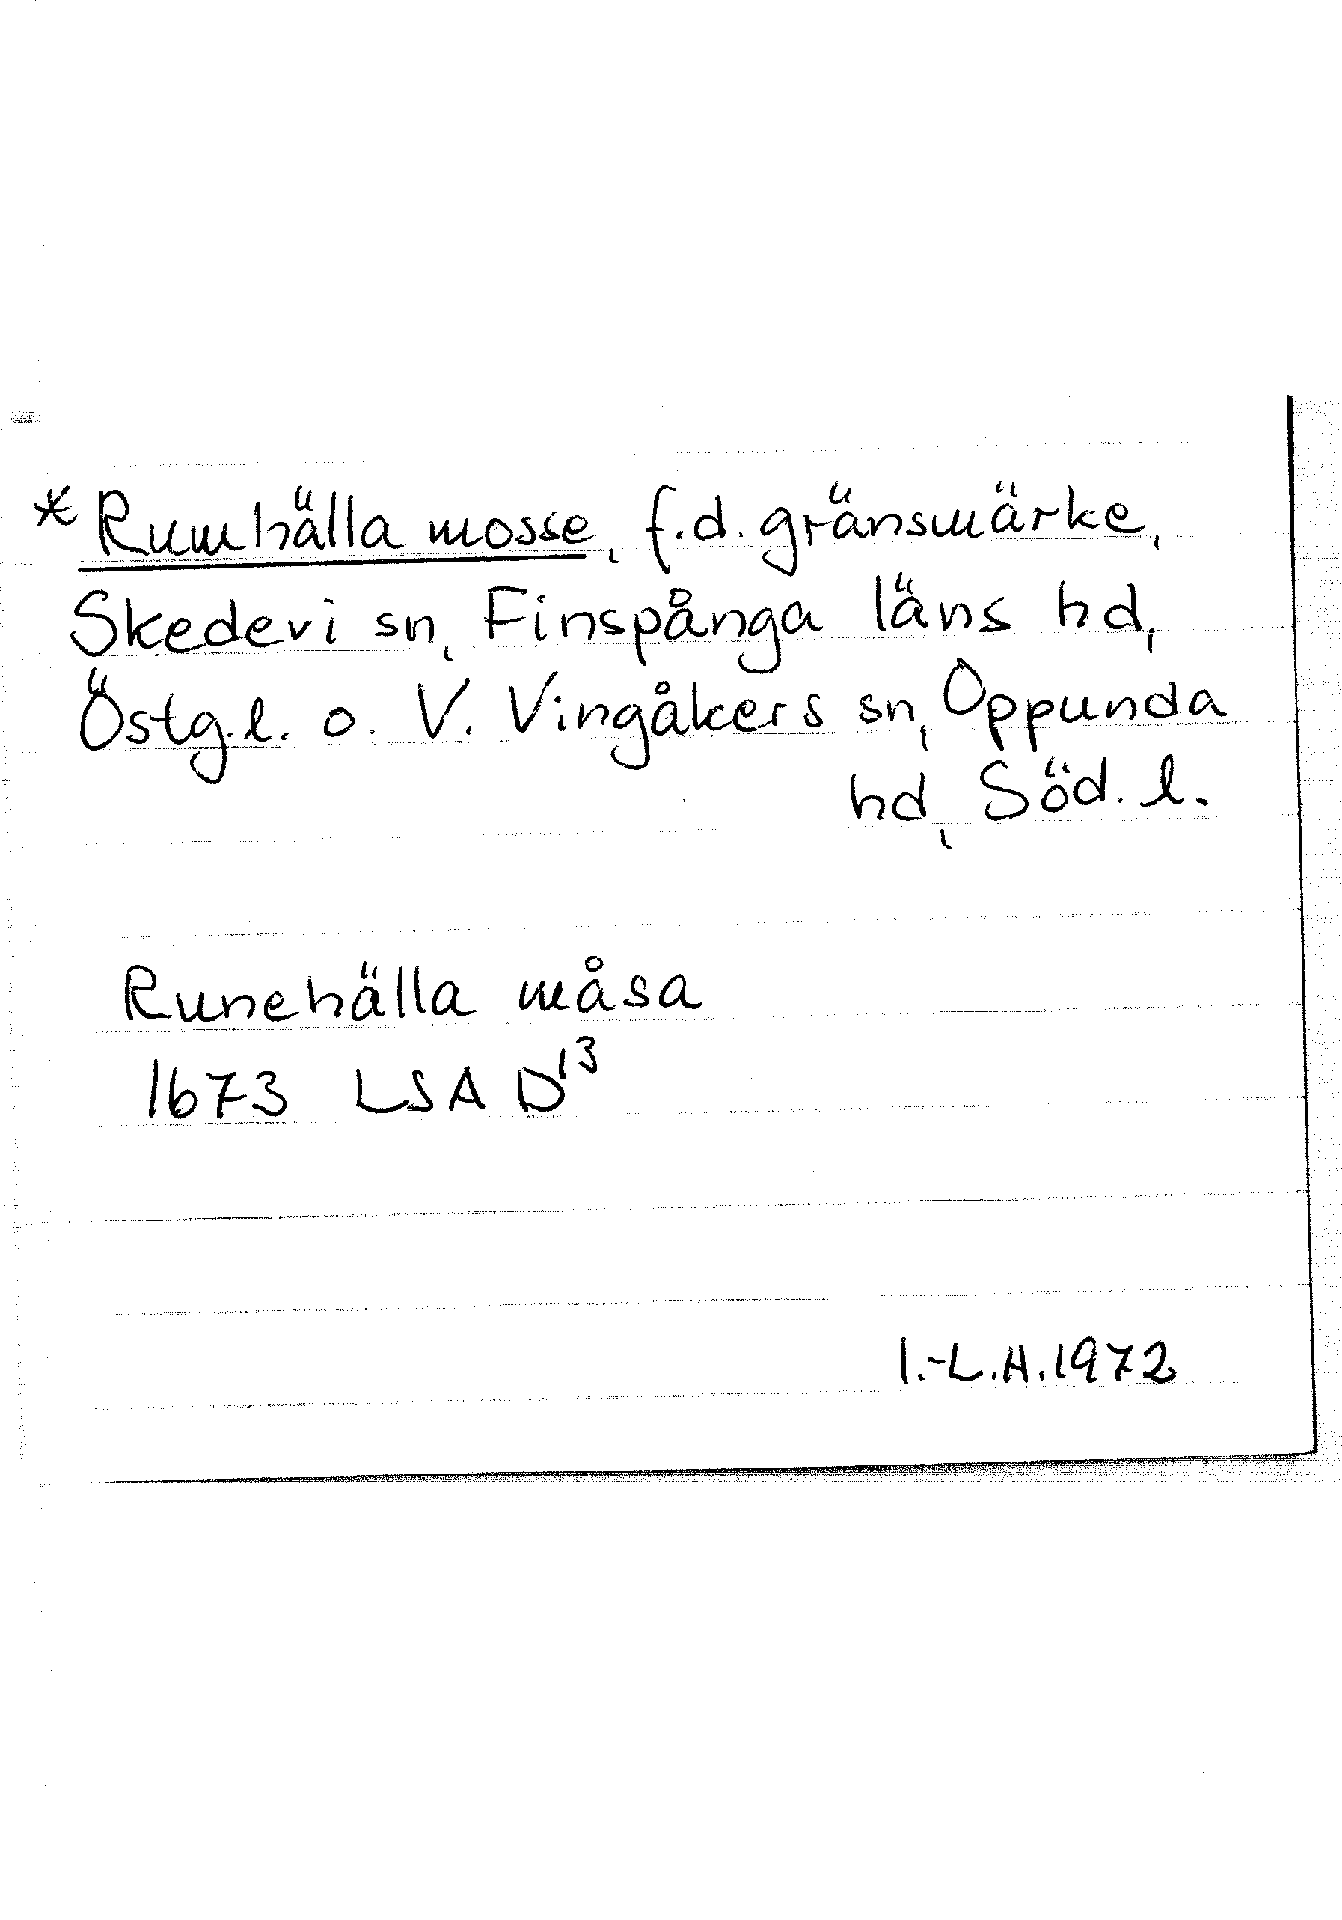 * Rumhälla mosse, f.d. gränsmärke,
Skedevi sn, Finspånga läns hd,
Östg.l. o. V. Vingåkers sn, Oppunda
hd, Söd.l.
Runehälla måsa
1673 LSA D¹³
I.-L.H.1972